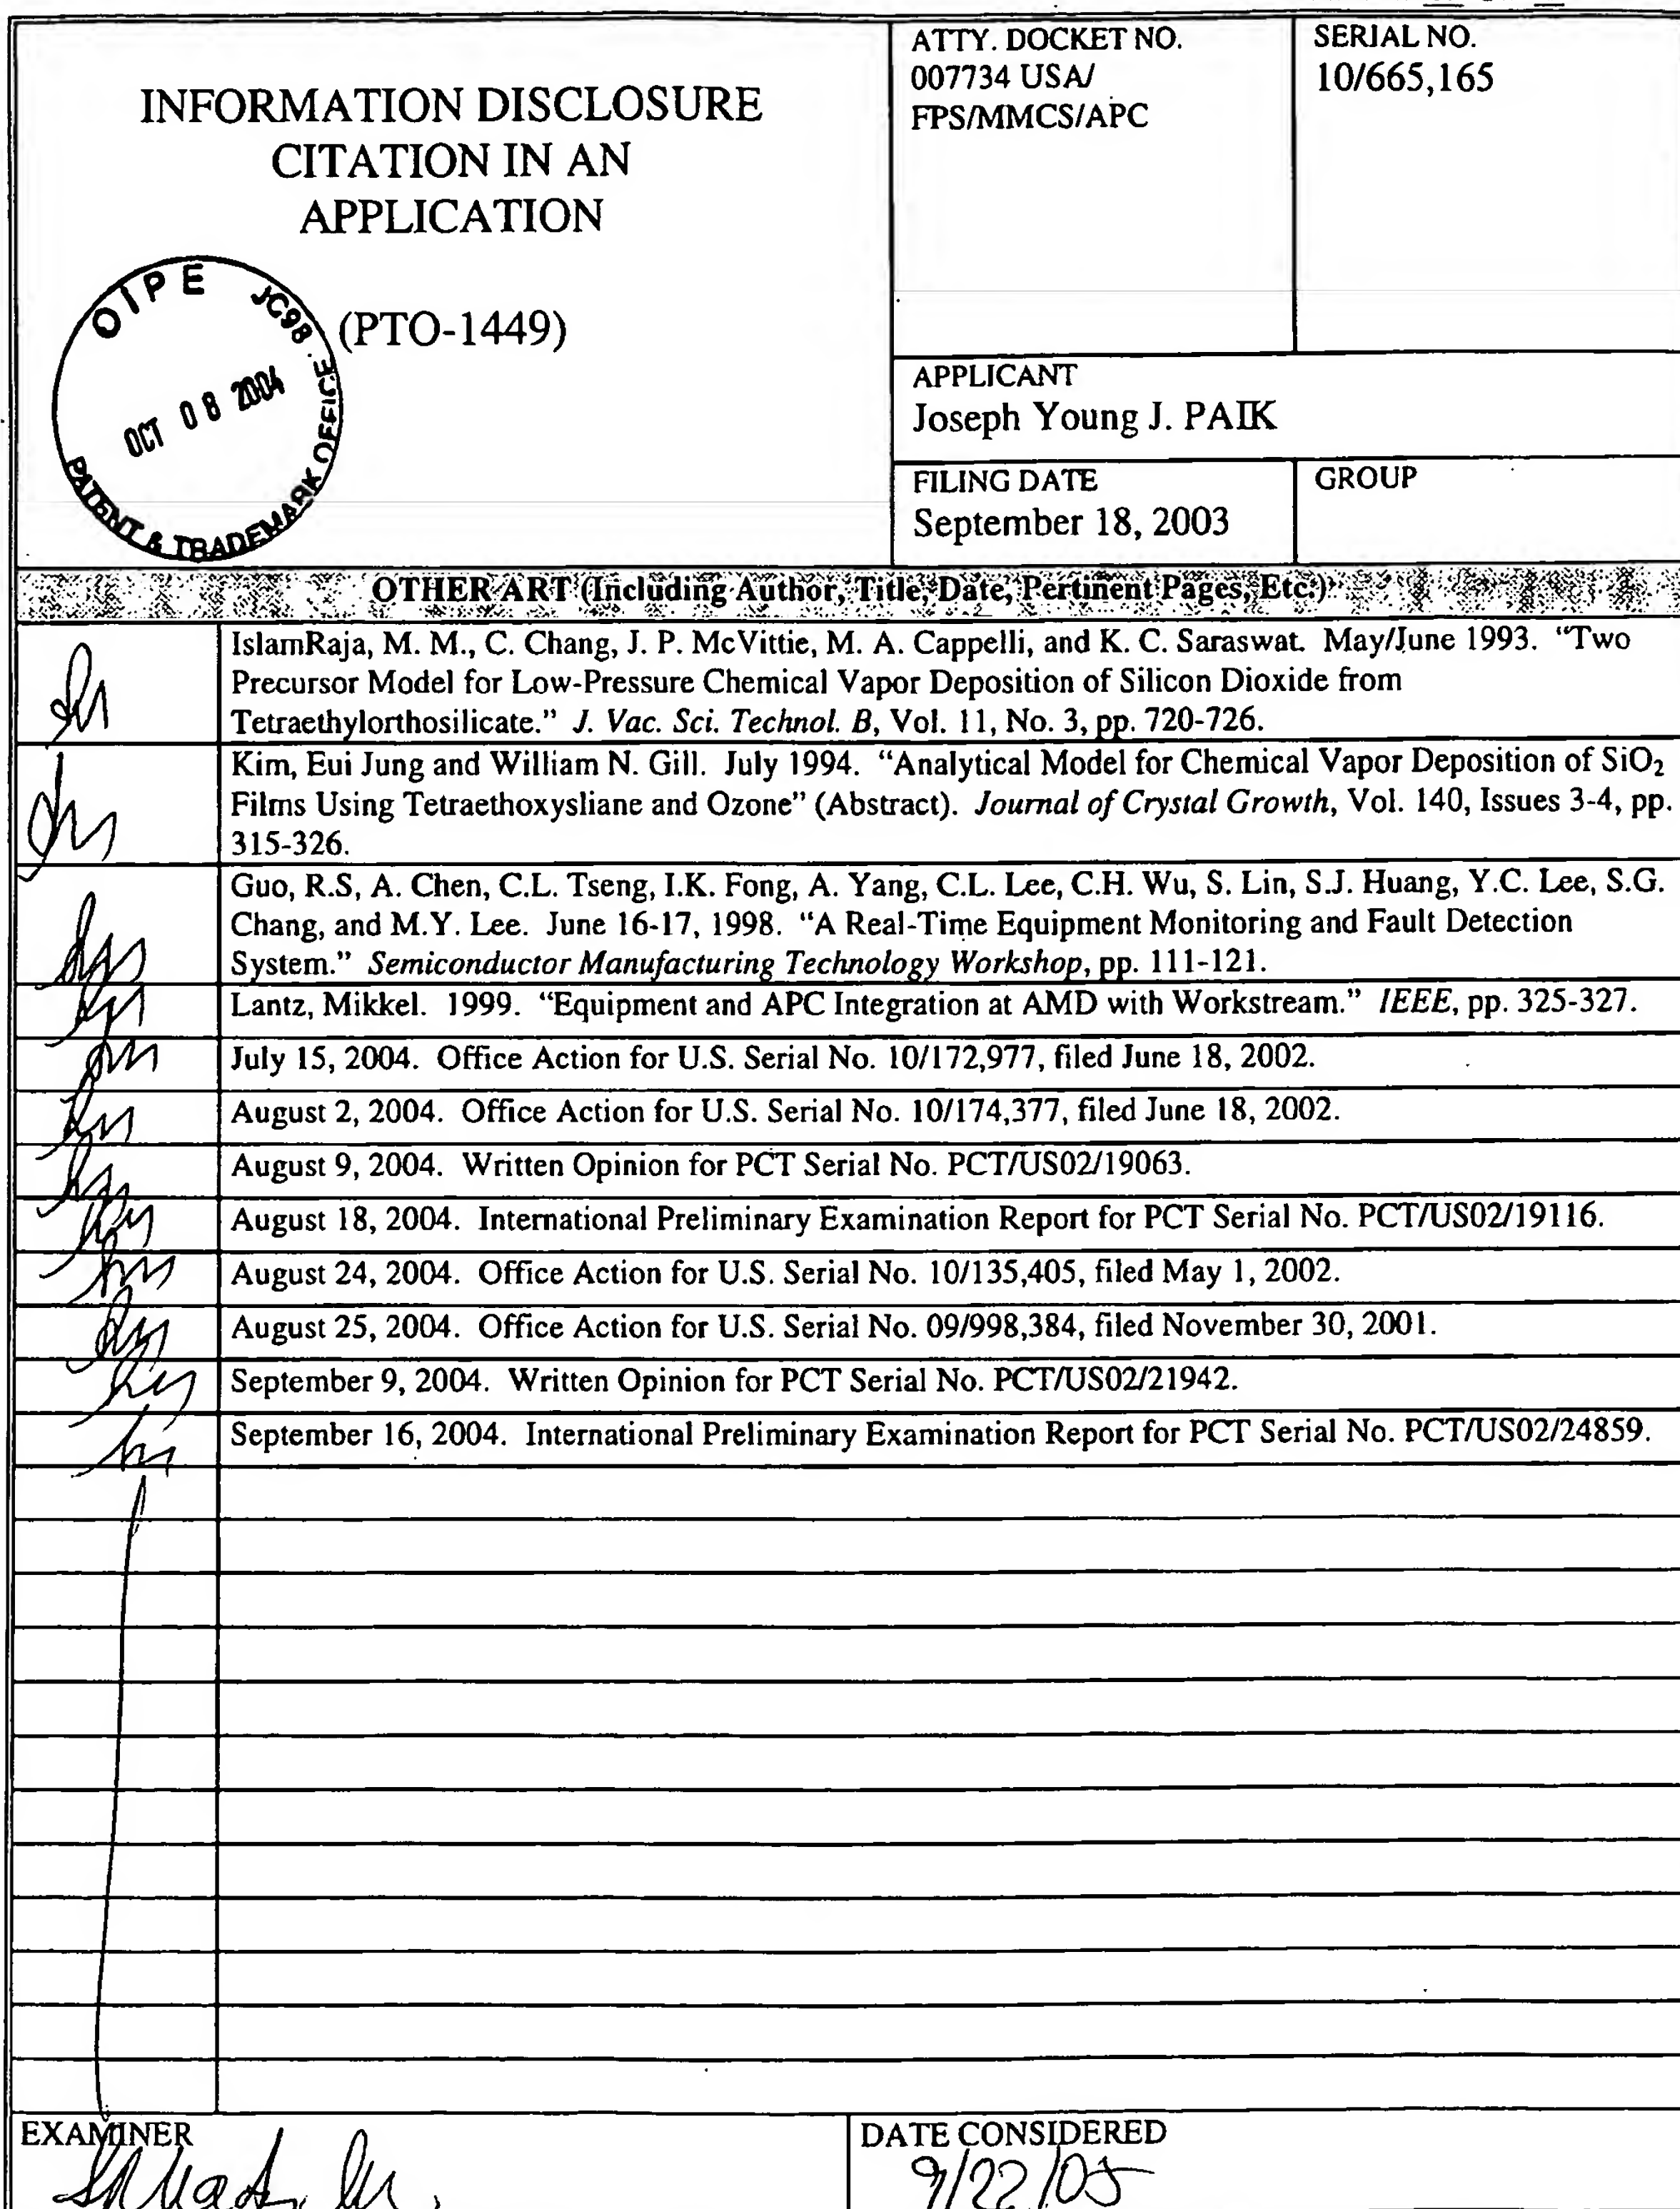 INFORMATION DISCLOSURE
CITATION IN AN
APPLICATION
(PTO-1449)
OIPE JC98
OCT 08 2004
PATENT & TRADEMARK OFFICE
ATTY. DOCKET NO.
007734 USA/
FPS/MMCS/APC
SERIAL NO.
10/665,165
APPLICANT
Joseph Young J. PAIK
FILING DATE
September 18, 2003
GROUP
OTHER ART (Including Author, Title, Date, Pertinent Pages, Etc.)
IslamRaja, M. M., C. Chang, J. P. McVittie, M. A. Cappelli, and K. C. Saraswat. May/June 1993. “Two
Precursor Model for Low-Pressure Chemical Vapor Deposition of Silicon Dioxide from
Tetraethylorthosilicate.” J. Vac. Sci. Technol. B, Vol. 11, No. 3, pp. 720-726.
Kim, Eui Jung and William N. Gill. July 1994. “Analytical Model for Chemical Vapor Deposition of SiO₂
Films Using Tetraethoxysliane and Ozone” (Abstract). Journal of Crystal Growth, Vol. 140, Issues 3-4, pp.
315-326.
Guo, R.S, A. Chen, C.L. Tseng, I.K. Fong, A. Yang, C.L. Lee, C.H. Wu, S. Lin, S.J. Huang, Y.C. Lee, S.G.
Chang, and M.Y. Lee. June 16-17, 1998. “A Real-Time Equipment Monitoring and Fault Detection
System.” Semiconductor Manufacturing Technology Workshop, pp. 111-121.
Lantz, Mikkel. 1999. “Equipment and APC Integration at AMD with Workstream.” IEEE, pp. 325-327.
July 15, 2004. Office Action for U.S. Serial No. 10/172,977, filed June 18, 2002.
August 2, 2004. Office Action for U.S. Serial No. 10/174,377, filed June 18, 2002.
August 9, 2004. Written Opinion for PCT Serial No. PCT/US02/19063.
August 18, 2004. International Preliminary Examination Report for PCT Serial No. PCT/US02/19116.
August 24, 2004. Office Action for U.S. Serial No. 10/135,405, filed May 1, 2002.
August 25, 2004. Office Action for U.S. Serial No. 09/998,384, filed November 30, 2001.
September 9, 2004. Written Opinion for PCT Serial No. PCT/US02/21942.
September 16, 2004. International Preliminary Examination Report for PCT Serial No. PCT/US02/24859.
EXAMINER
DATE CONSIDERED
9/22/05